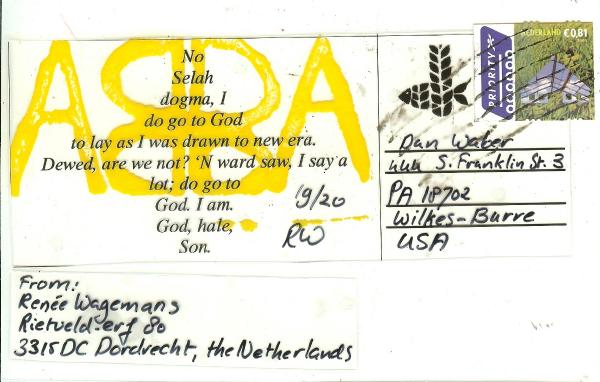 ABBA
No
Selah
dogma, I
do go to God
to lay as I was drawn to new era.
Dewed, are we not? 'N ward saw, I say a
lot; do go to
God. I am.
God, hale,
Son.
19/20
RW
PRIORITY
NEDERLAND €0,81
Dan Waber
444 S. Franklin St. 3
PA 18702
Wilkes-Barre
USA
From:
Renée Wagemans
Rietveld-erf 80
3315DC Dordrecht, the Netherlands